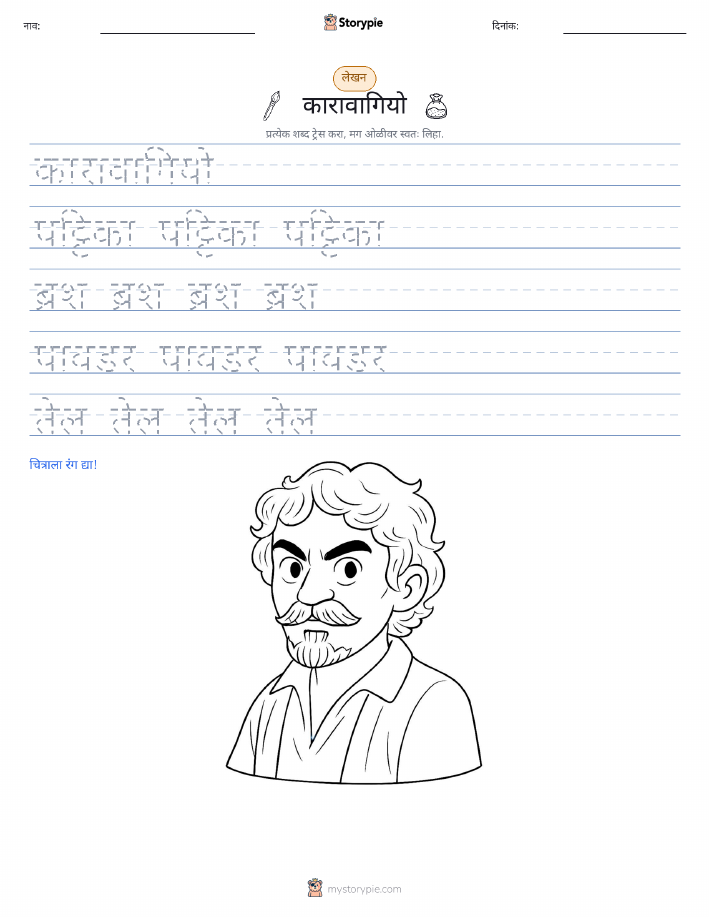 नाव:
Storypie
दिनांक:
लेखन
कारावागियो
प्रत्येक शब्द ट्रेस करा, मग ओळीवर स्वतः लिहा.
कारावागियो
पट्टिका पट्टिका पट्टिका
ब्रश ब्रश ब्रश ब्रश
पावडर पावडर पावडर
तेल तेल तेल तेल
चित्राला रंग द्या!
mystorypie.com